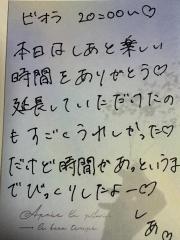 ビオラ 20:00い♡
本日はしあと楽しい
時間をありがとう♡
延長していただけたの
もすごくうれしかった♡
だけど時間があっというま
でびっくりしたよー♡
しあ♡
Après la pluie
le beau temps